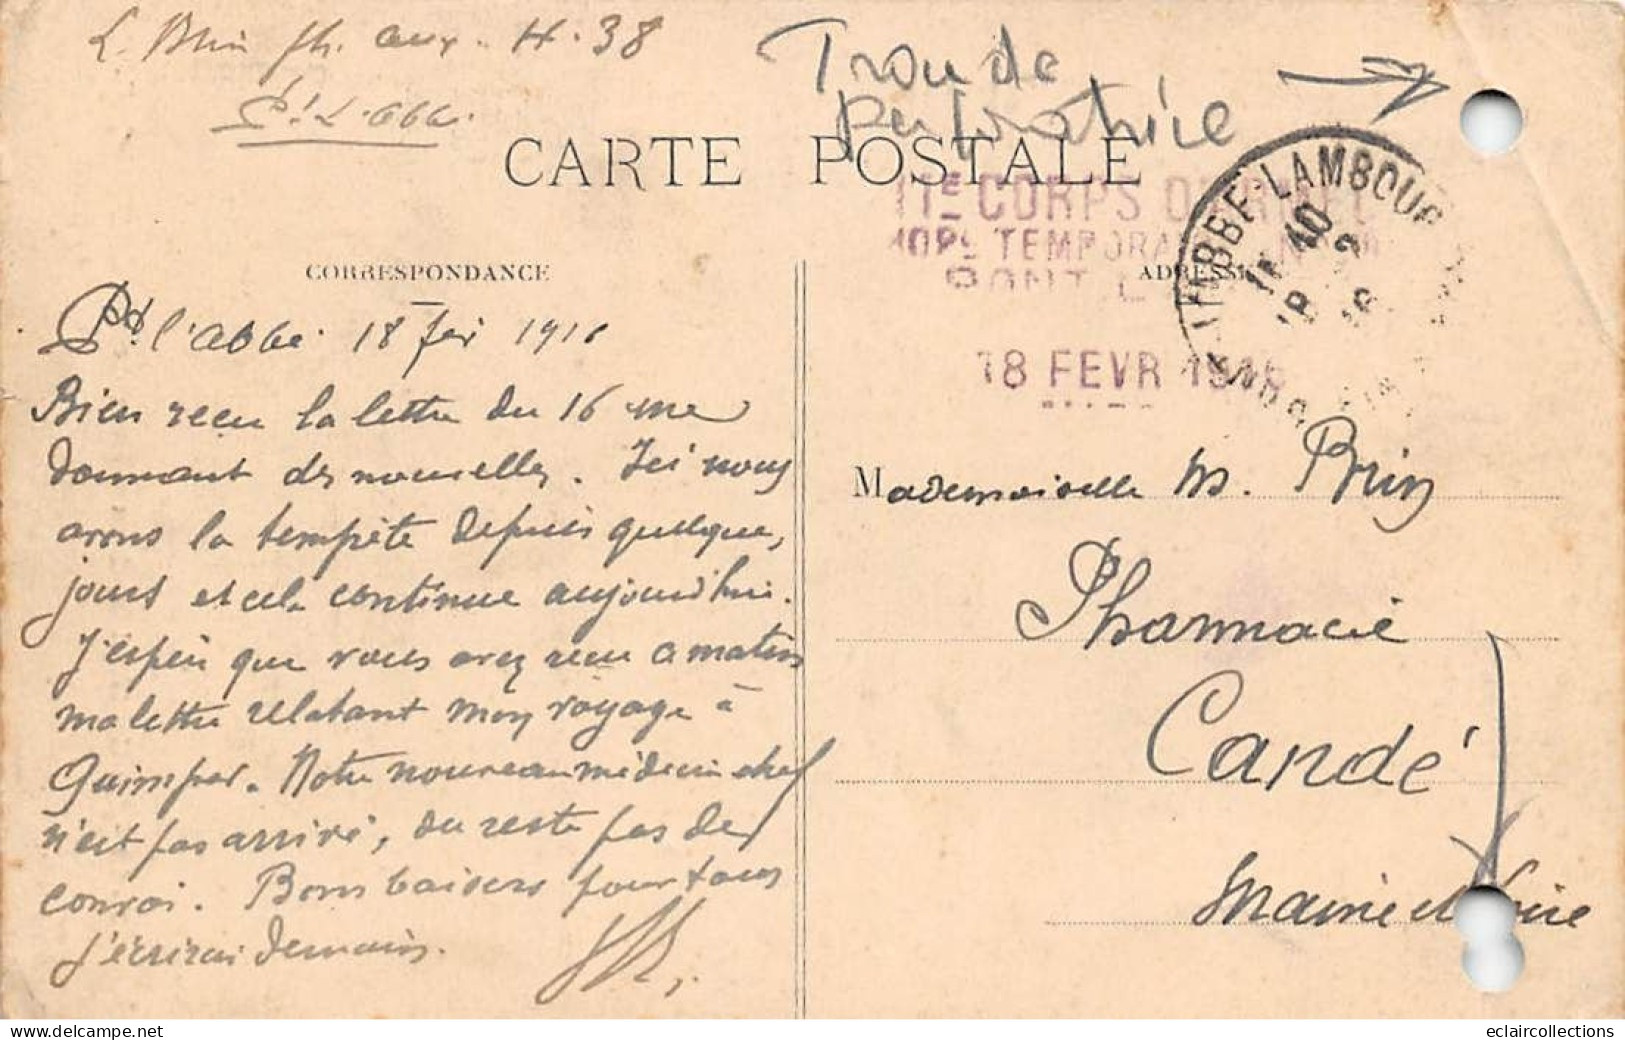 L. Brin ph. aux. H. 38
Pt. L. abbé.
Trou de
perforatrice
CARTE POSTALE
11E CORPS
TEMPORA
PONT L
LAMBOUR
18 FEVR 1916
CORRESPONDANCE
ADRESSE
Pt. l'abbé. 18 fev 1916
Bien reçu la lettre du 16 me
donnant des nouvelles. Ici nous
avons la tempête depuis quelques
jours et cela continue aujourd'hui.
J'espère que vous avez reçu ce matin
ma lettre relatant mon voyage à
Quimper. Notre nouveau médecin chef
n'est pas arrivé, du reste pas de
convoi. Bons baisers pour tous
j'écrirai demain.
Mademoiselle M. Brin
Pharmacie
Candé
Maine et Loire
delcampe.net
eclaircollections